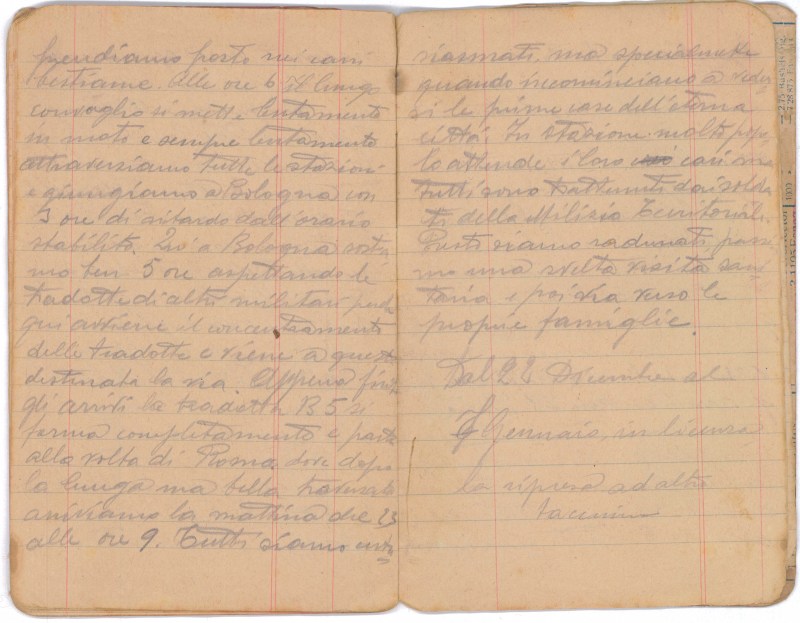 prendiamo posto nei carri
bestiame. Alle ore 6 il lungo
convoglio si mette lentamente
in moto e sempre lentamente
attraversiamo tutte le stazioni
e giungiamo a Bologna con
3 ore di ritardo dall'orario
stabilito. Qui a Bologna sostia
mo ben 5 ore aspettando le
tradotte di altri militari perchè
qui avviene il concentramento
delle tradotte e viene a queste
destinata la via. Appena finiti
gli arrivi la tradotta B5 si
forma completamente e parte
alla volta di Roma dove dopo
la lunga ma bella traversata
arriviamo la mattina del 23
alle ore 9. Tutti siamo entu
siasmati, ma specialmente
quando incominciano a veder
si le prime case dell'eterna
città. In stazione molto popo
lo attende i loro cari ma
tutti sono trattenuti dai solda
ti della Milizia Territoriale.
Presto siamo radunati, passia
mo una svelta visita sani
taria e poi via verso le
proprie famiglie.
Dal 22 Dicembre al
7 Gennaio, in licenza
la ripresa ad altro
taccuino